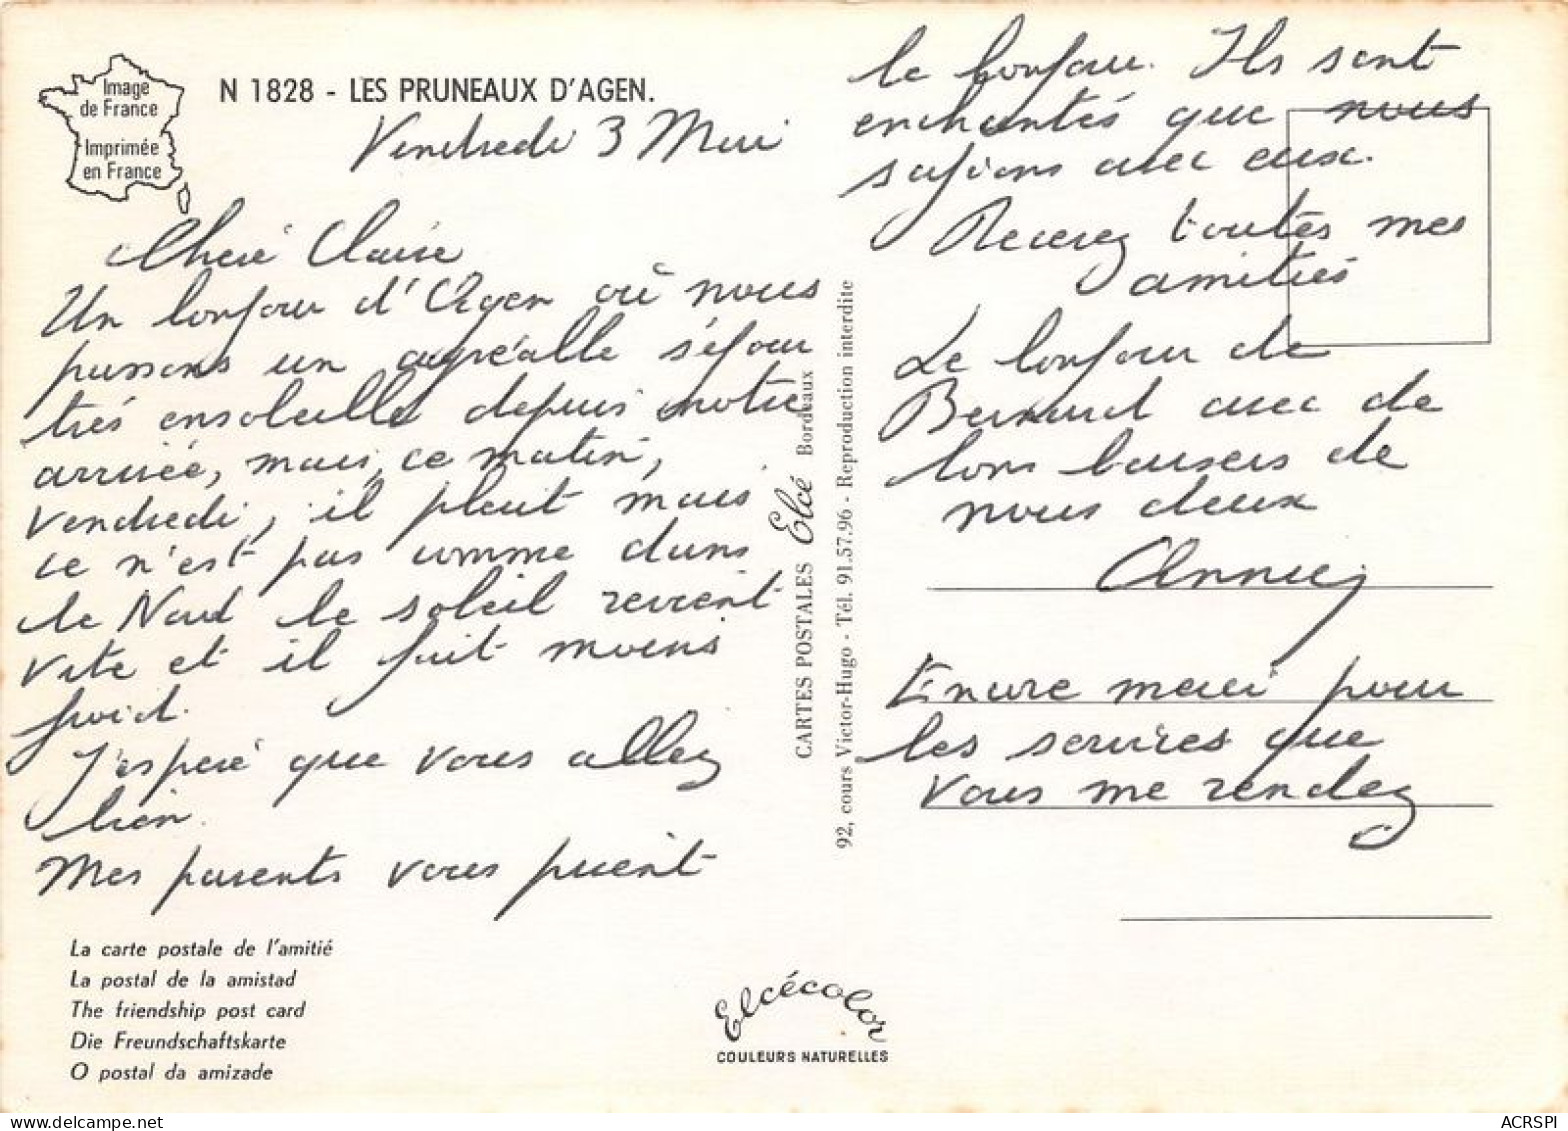 Image
de France
Imprimée
en France
N 1828 - LES PRUNEAUX D'AGEN.
Vendredi 3 Mai
Cheré Claire
Un bonjour d'Agen où nous
passons un agréable séjour
très ensoleillé depuis notre
arrivée, mais, ce matin,
vendredi, il pleut mais
ce n'est pas comme dans
le Nord le soleil revient
vite et il fait moins
froid.
J'esperé que vous allez
bien.
Mes parents vous prient
La carte postale de l'amitié
La postal de la amistad
The friendship post card
Die Freundschaftskarte
O postal da amizade
CARTES POSTALES Elcé Bordeaux
92, cours Victor-Hugo - Tél. 91.57.96 - Reproduction interdite
Elcécolor
COULEURS NATURELLES
le bonjour. Ils sont
enchantés que nous
soyions avec eux.
Recevez toutes mes
amitiés
Le bonjour de
Bernard avec de
bons baisers de
nous deux
Annie
Encore merci pour
les services que
vous me rendez
ACRSPI